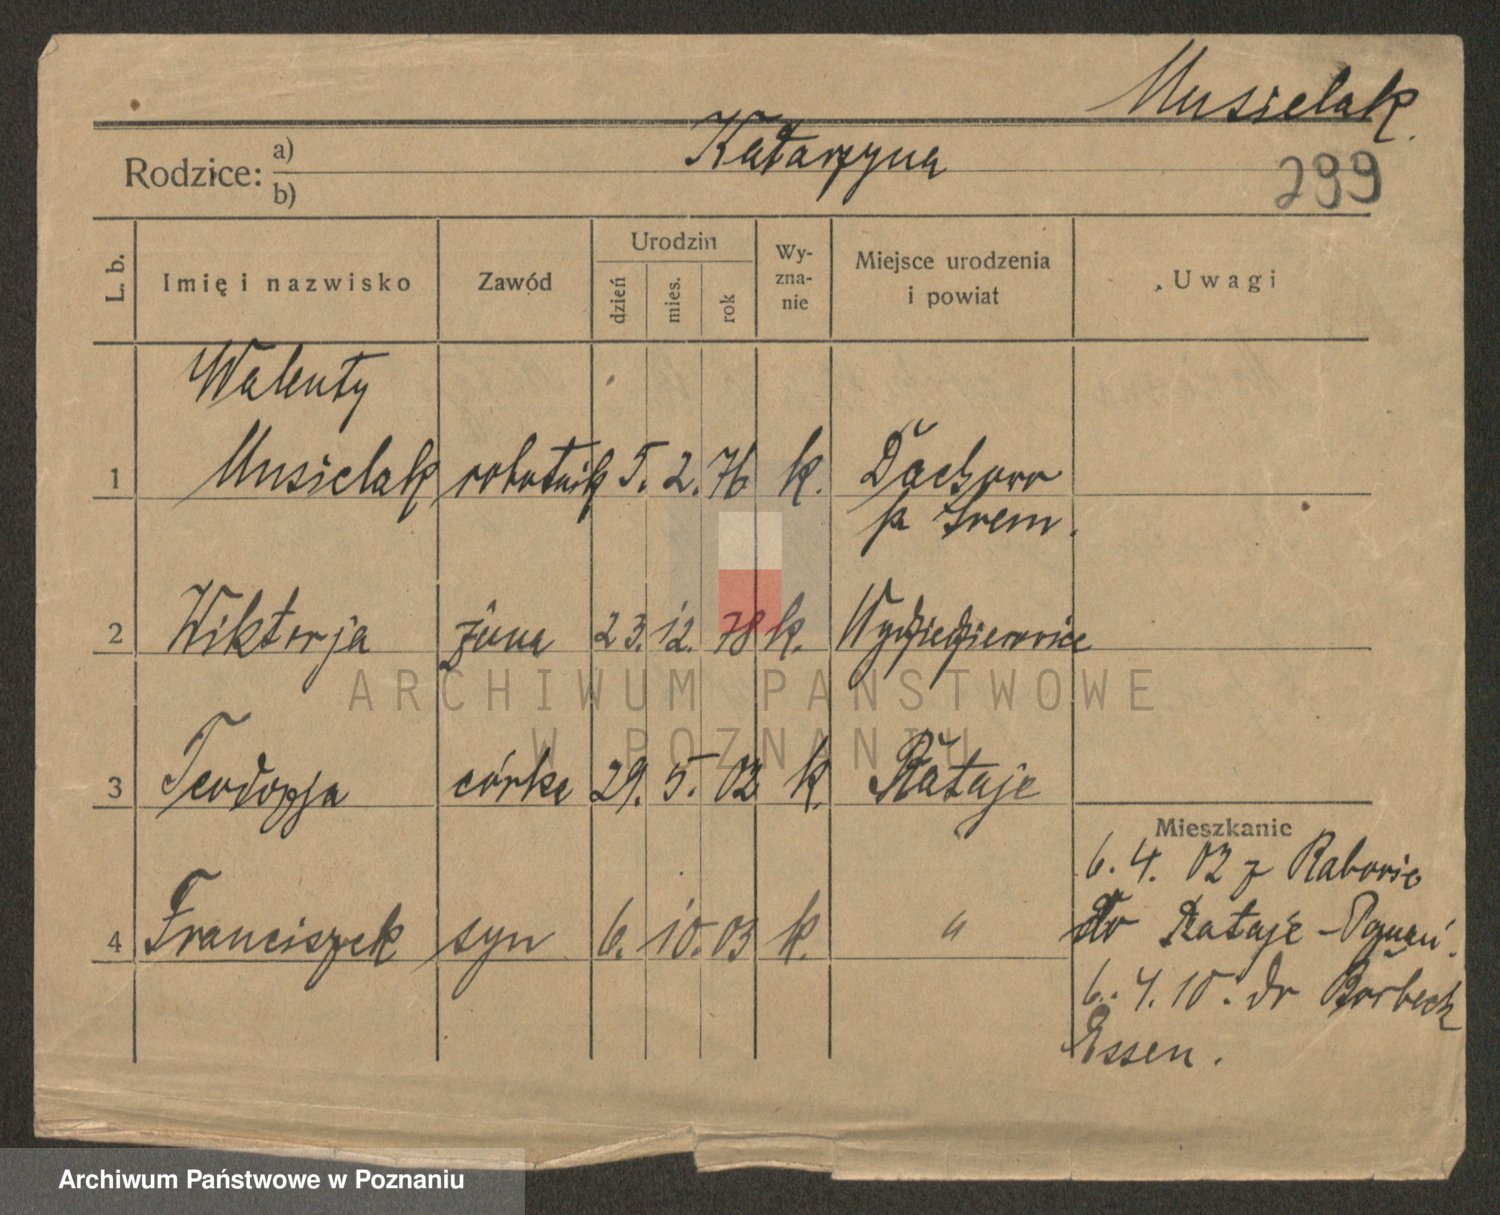 Musielak
Rodzice: a) Katarzyna
b)
299
L. b. Imię i nazwisko Zawód Urodzin dzień mies. rok Wy-zna-nie Miejsce urodzenia i powiat Uwagi
Walenty
1 Musielak robotnik 5. 2. 76 k. Dachowo
p. Śrem.
2 Wiktorja żona 23. 12. 78 k.
3 Teodozja córka 29. 5. 02 k. Rataje
Mieszkanie
6. 4. 02 z
4 Franciszek syn 6. 10. 03 k. "
do Rataje - Poznań.
6. 4. 10. do Borbeck
Essen.
ARCHIWUM PAŃSTWOWE
W POZNANIU
Archiwum Państwowe w Poznaniu